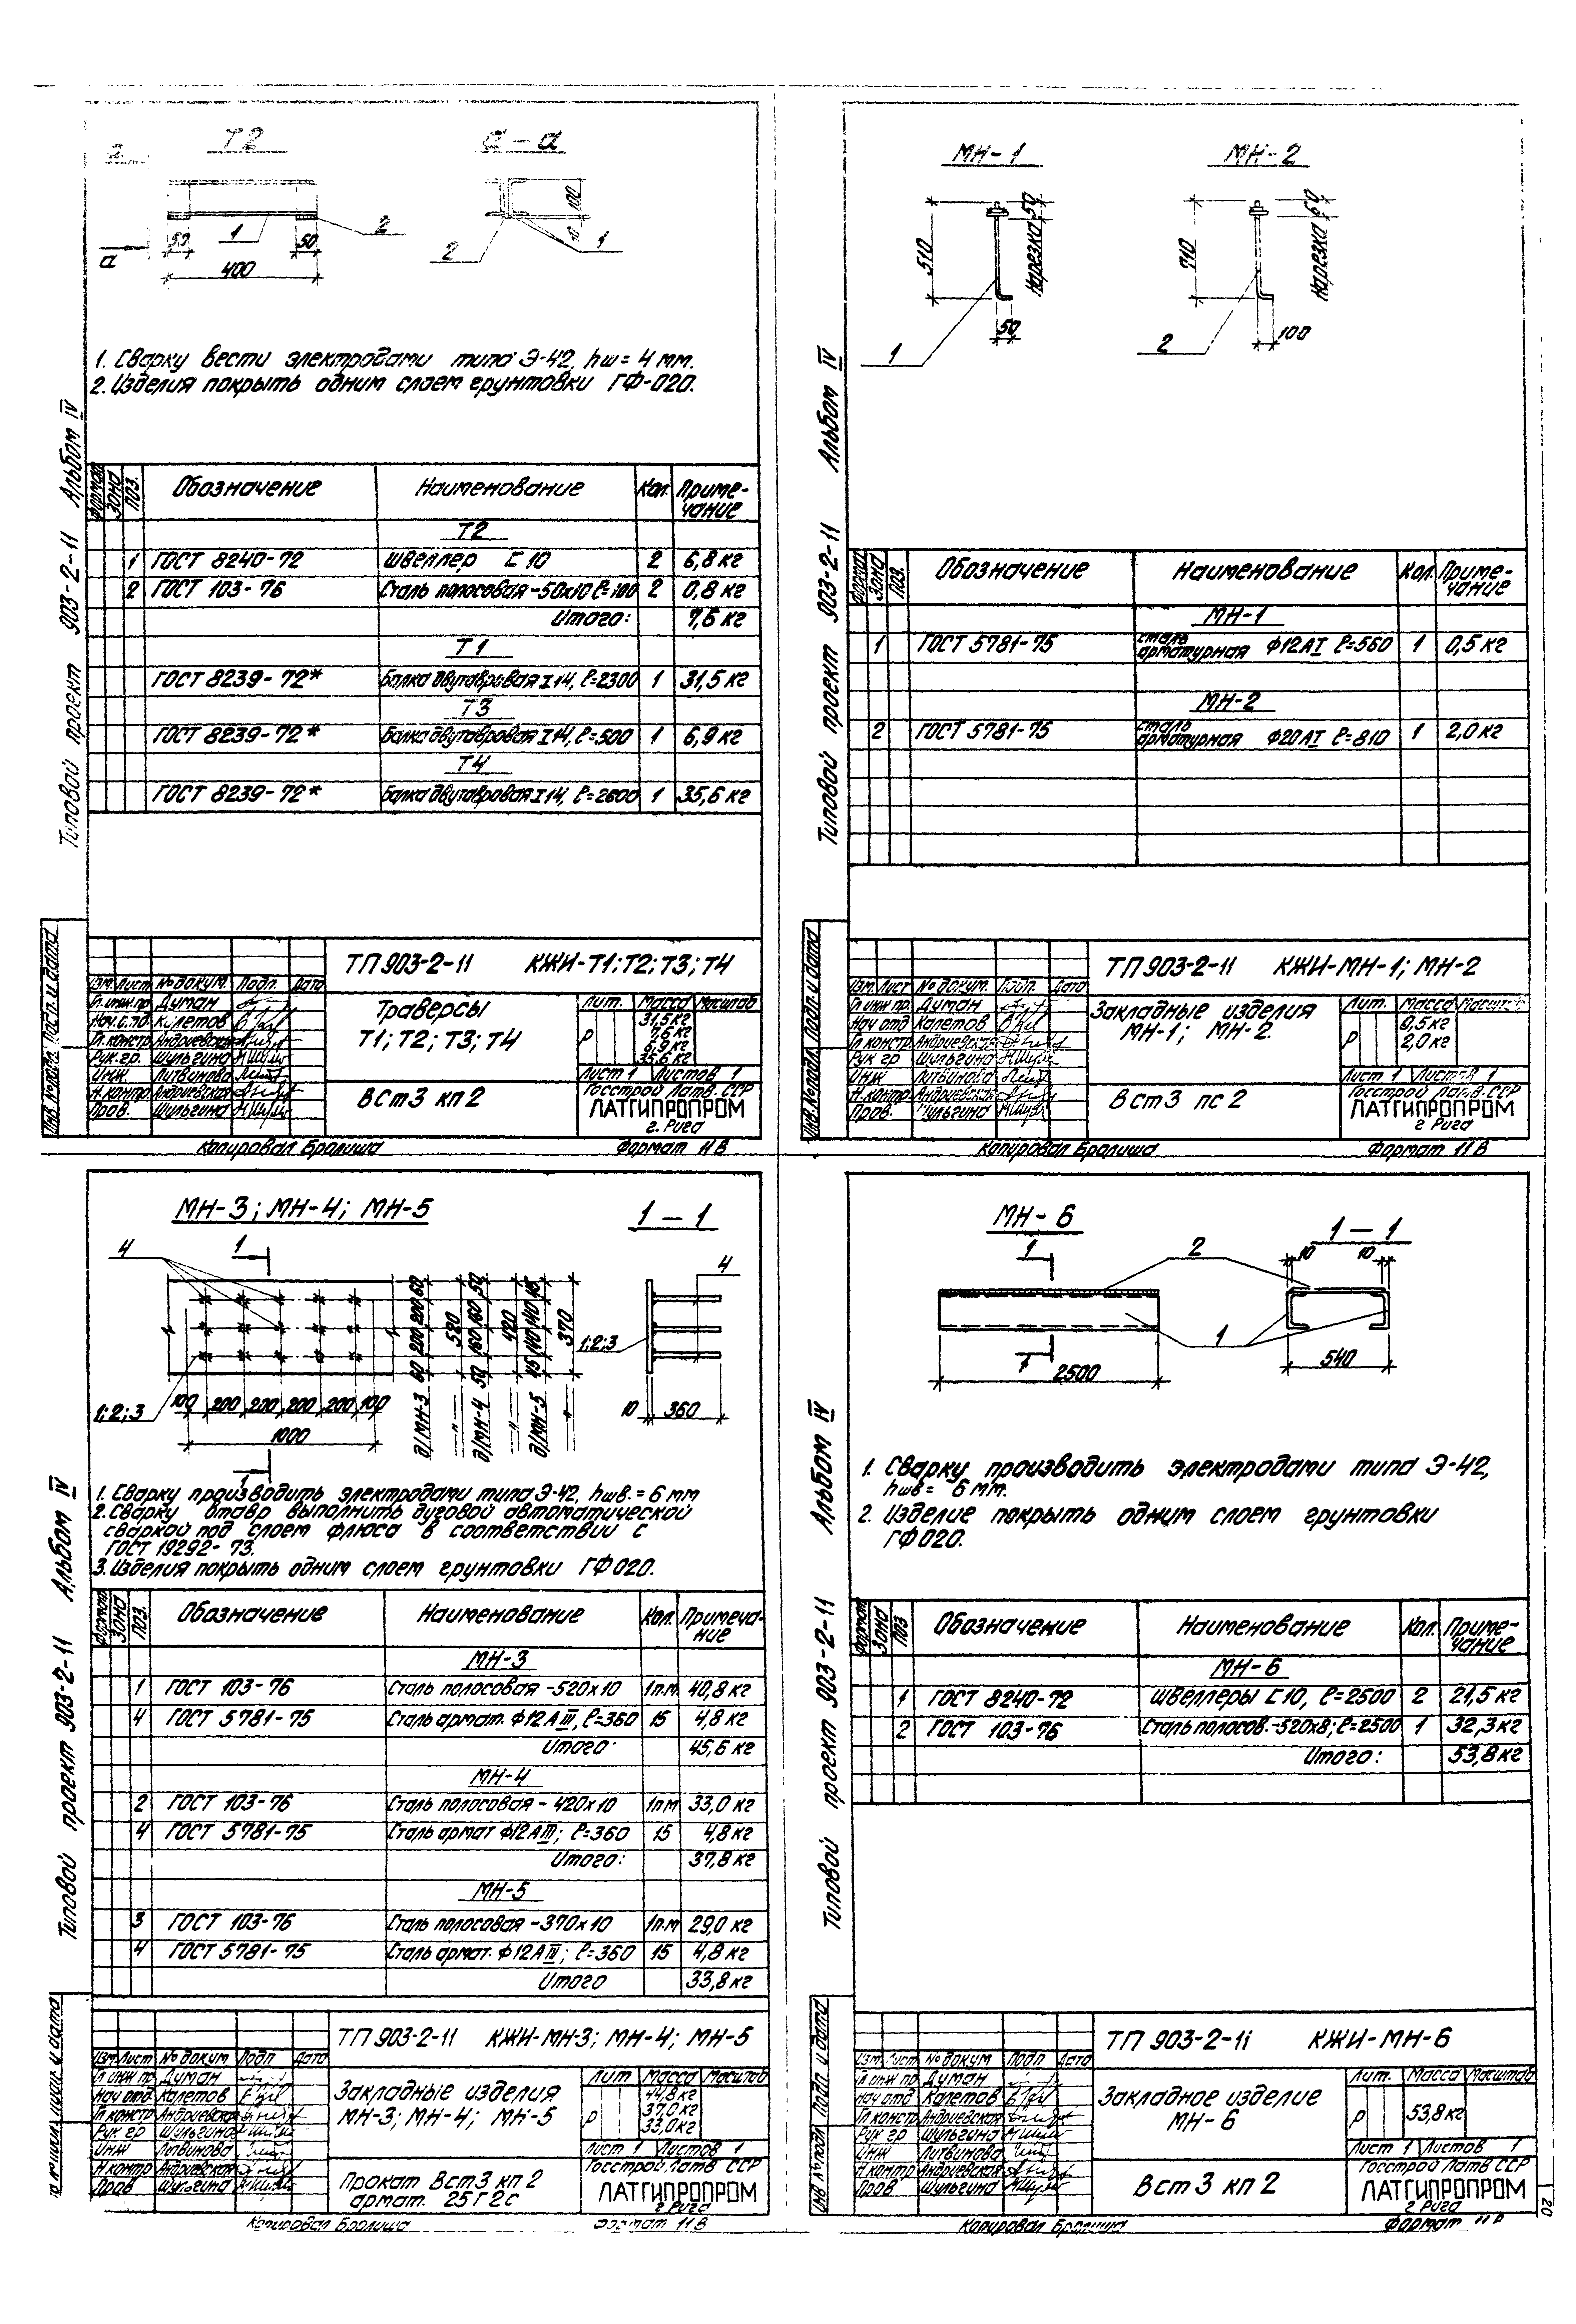 Т2
а – а
50
1
50
2
а
400
100
10
2
1
1. Сварку вести электродами типа Э-42, hш = 4 мм.
2. Изделия покрыть одним слоем грунтовки ГФ-020.
Типовой проект 903-2-11 Альбом IV
Формат Зона Поз. Обозначение Наименование Кол. Примечание
Т2
1 ГОСТ 8240-72 Швеллер С 10 2 6,8 кг
2 ГОСТ 103-76 Сталь полосовая -50х10 ℓ=100 2 0,8 кг
Итого: 7,6 кг
Т1
ГОСТ 8239-72* Балка двутавровая I 14, ℓ=2300 1 31,5 кг
Т3
ГОСТ 8239-72* Балка двутавровая I 14, ℓ=500 1 6,9 кг
Т4
ГОСТ 8239-72* Балка двутавровая I 14, ℓ=2600 1 35,6 кг
ТП 903-2-11 КЖИ-Т1; Т2; Т3; Т4
Изм. Лист № докум. Подп. Дата
Гл. инж. пр. Думан
Нач. отд. Калетов
Гл. констр. Андриевская
Рук. гр. Шульгина
Инж. Литвинова
Н. контр. Андриевская
Пров. Шульгина
Траверсы
Т1; Т2; Т3; Т4
Лит. Масса Масштаб
Р
31,5 кг
7,6 кг
6,9 кг
35,6 кг
Лист 1 Листов 1
ВСт3 кп2
Госстрой Латв. ССР
ЛАТГИПРОПРОМ
г. Рига
Инв. № подл. Подп. и дата
Копировал Бролиша Формат 11В
МН-1 МН-2
510
50
Нарезка
1
50
710
50
Нарезка
2
100
Типовой проект 903-2-11 Альбом IV
Формат Зона Поз. Обозначение Наименование Кол. Примечание
МН-1
1 ГОСТ 5781-75 сталь арматурная Ф12АI ℓ=560 1 0,5 кг
МН-2
2 ГОСТ 5781-75 сталь арматурная Ф20АI ℓ=810 1 2,0 кг
ТП 903-2-11 КЖИ-МН-1; МН-2
Изм. Лист № докум. Подп. Дата
Гл инж пр. Думан
Нач отд Калетов
Гл констр Андриевская
Рук гр Шульгина
Инж Литвинова
Н. контр. Андриевская
Пров. Шульгина
Закладные изделия
МН-1; МН-2.
Лит. Масса Масштаб
Р
0,5 кг
2,0 кг
Лист 1 Листов 1
ВСт3 пс2
Госстрой Латв. ССР
ЛАТГИПРОПРОМ
г Рига
Инв. № подл. Подп. и дата
Копировал Бролиша Формат 11В
МН-3; МН-4; МН-5
1 – 1
4
1
1;2;3
100 200 200 200 200 100
1000
1
60 200 200 60
д/МН-3
520
—"—
50 160 160 50
д/МН-4
420
—"—
45 140 140 45
д/МН-5
370
—"—
4
1;2;3
10 360
1. Сварку производить электродами типа Э-42, hшв. = 6 мм
2. Сварку втавр выполнить дуговой автоматической
сваркой под слоем флюса в соответствий с
ГОСТ 19292-73.
3. Изделия покрыть одним слоем грунтовки ГФ020.
Типовой проект 903-2-11 Альбом IV
Формат Зона Поз. Обозначение Наименование Кол. Примечание
МН-3
1 ГОСТ 103-76 Сталь полосовая -520х10 1п.м 40,8 кг
4 ГОСТ 5781-75 Сталь армат. Ф12АIII, ℓ=360 15 4,8 кг
Итого: 45,6 кг
МН-4
2 ГОСТ 103-76 Сталь полосовая -420х10 1п.м 33,0 кг
4 ГОСТ 5781-75 Сталь армат Ф12АIII; ℓ=360 15 4,8 кг
Итого: 37,8 кг
МН-5
3 ГОСТ 103-76 Сталь полосовая -370х10 1п.м 29,0 кг
4 ГОСТ 5781-75 Сталь армат. Ф12АIII; ℓ=360 15 4,8 кг
Итого 33,8 кг
ТП 903-2-11 КЖИ-МН-3; МН-4; МН-5
Изм Лист № докум Подп Дата
Гл инж пр Думан
Нач отд Калетов
Гл констр Андриевская
Рук гр Шульгина
Инж Литвинова
Н контр Андриевская
Пров Шульгина
Закладные изделия
МН-3; МН-4; МН-5
Лит Масса Масштаб
Р
44,8 кг
37,0 кг
33,0 кг
Лист 1 Листов 1
Прокат ВСт3 кп2
армат. 25Г2С
Госстрой Латв ССР
ЛАТГИПРОПРОМ
г. Рига
Копировал Бролиша Формат 11В
МН-6
1 – 1
1
2
10 10
1
1
2500
540
1. Сварку производить электродами типа Э-42,
hшв = 6 мм.
2. Изделие покрыть одним слоем грунтовки
ГФ020.
Типовой проект 903-2-11 Альбом IV
Формат Зона Поз Обозначение Наименование Кол. Примечание
МН-6
1 ГОСТ 8240-72 Швеллеры С10, ℓ=2500 2 21,5 кг
2 ГОСТ 103-76 Сталь полосов. -520х8; ℓ=2500 1 32,3 кг
Итого: 53,8 кг
ТП 903-2-11 КЖИ-МН-6
Изм Лист № докум Подп Дата
Гл инж пр Думан
Нач отд Калетов
Гл констр Андриевская
Рук гр Шульгина
Инж Литвинова
Н контр Андриевская
Пров Шульгина
Закладное изделие
МН-6
Лит. Масса Масштаб
Р 53,8 кг
Лист 1 Листов 1
ВСт3 кп2
Госстрой Латв ССР
ЛАТГИПРОПРОМ
г Рига
Инв № подл Подп. и дата
Копировал Бролиша Формат 11В
20